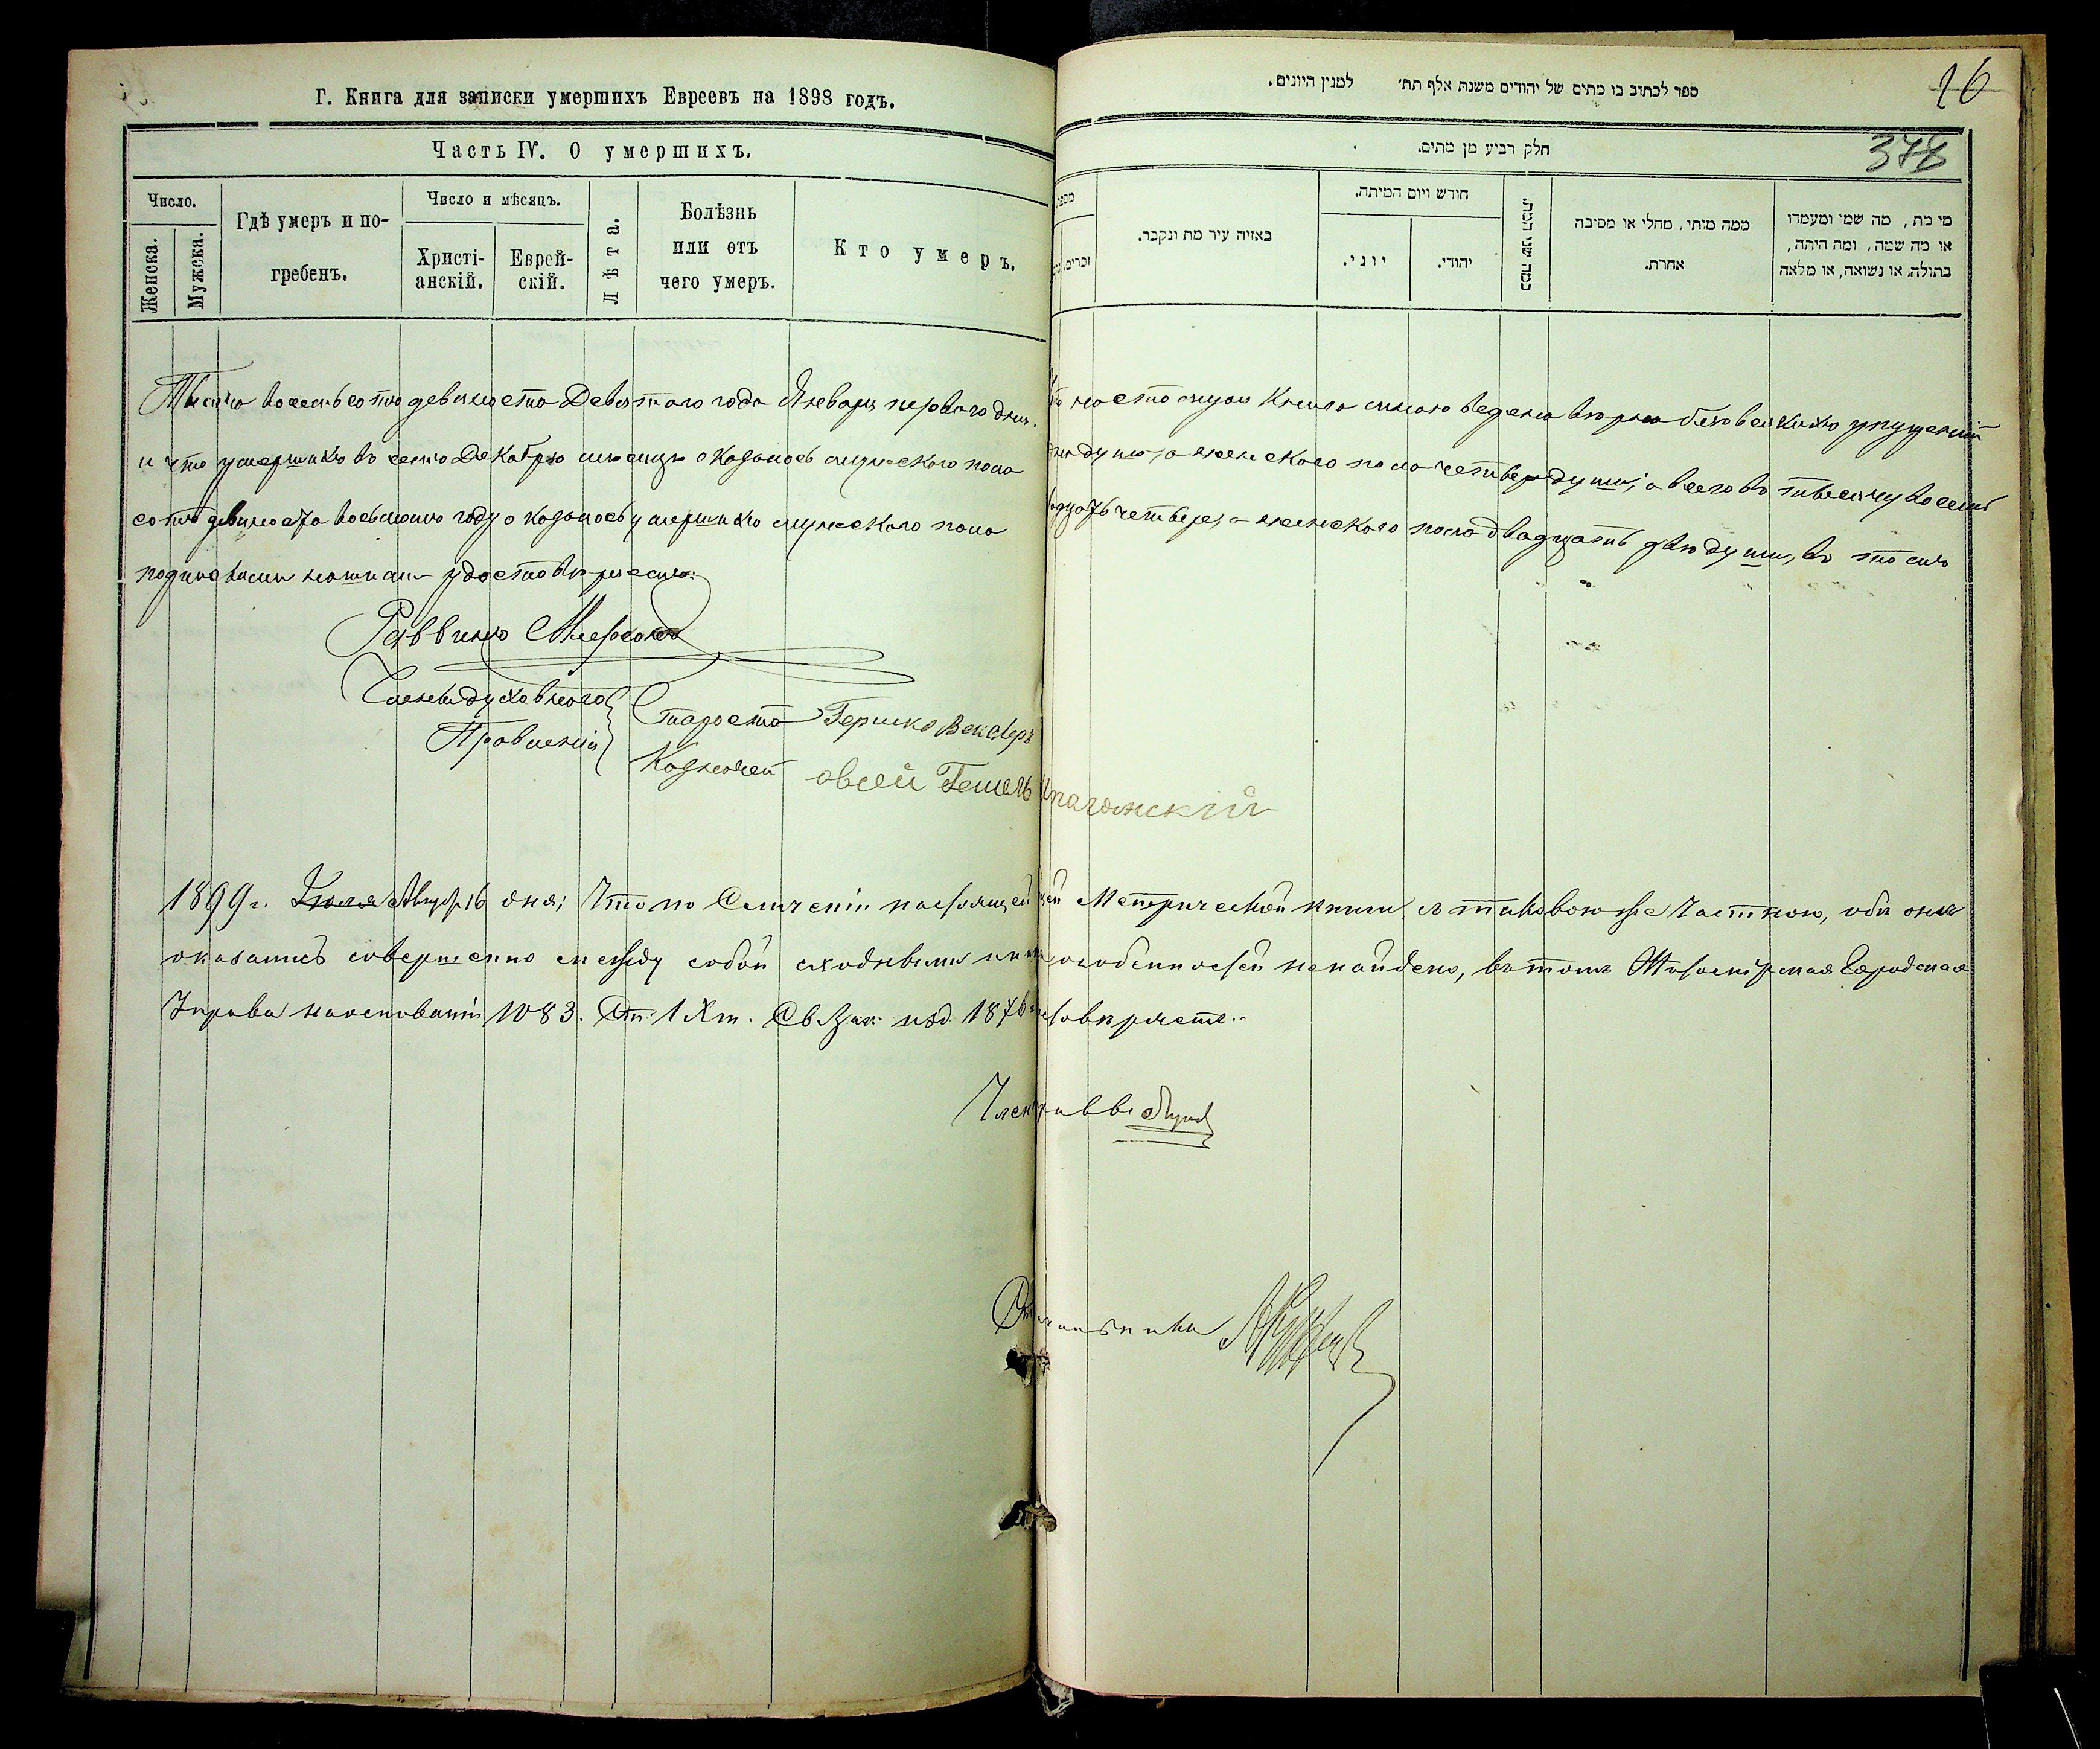 Г. Книга для записки умершихъ Евреевъ на 1898 годъ.
Часть IV. О умершихъ.
Число.
Женска.
Мужска.
Гдѣ умеръ и по-
гребенъ.
Число и мѣсяцъ.
Христі-
анскій.
Еврей-
скій.
Лѣта.
Болѣзнь
или отъ
чего умеръ.
Кто умеръ.
ספר לכתוב בו מתים של יהודים משנת אלף תת׳ למנין היונים.
16
חלק רביעי מן מתים.
378
זכרים.
באיזה עיר מת ונקבר.
חודש ויום המיתה.
יוני.
יהודי.
ממה מיתי, מחלי או מסיבה
אחרת.
מי מת, מה שמו ומעמדו
או מה שמה, ומה היתה,
בתולה, או נשואה, או מלאה
Тысяча восемьсотъ девяносто Девятаго года Января перваго дня. Что настоящая Книга мною ведена вѣрно безъ всякихъ упущеній
и что умершихъ въ семъ Декабрѣ мѣсяцѣ оказалось мужескаго пола душъ, а женскаго пола четверо души; а всего въ тысячу восемь
сотъ девяносто восьмомъ году оказалось умершихъ мужескаго пола четверо, а женскаго пола двадцать двѣ души, въ томъ
подписями нашими удостовѣряемъ.
Раввинъ Меерсонъ
Члены духовнаго
Правленія
Староста Гершко Векслеръ
Казначей Овсей Гешель
1899 г. Іюля Август 16 дня; Что по Сличеніи настоящей Метрической книги съ таковою же Частною, обѣ онѣ
оказались совершенно между собой сходными и особенностей не найдено, въ томъ Городская
Управа на основаніи 1083. Ст. 1 Х т. Св Зак изд 1876
Член Управы